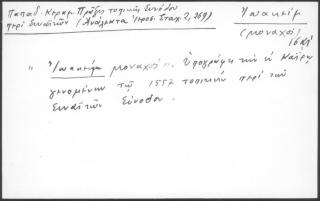 Παπαδ. Κεραμ. Πρᾶξις τοπικῆς Συνόδου
περὶ Σιναϊτῶν (Ἀνάλεκτα Ἱεροσ. Σταχ. 2, 369)
Ἰωακείμ
(μοναχοί)
" Ἰωακείμ μοναχοί". Ὑπογράφει τὴν ἐν Καΐρῳ
γενομένην τῷ 1557 τοπικὴν περὶ τῶν
Σιναϊτῶν Σύνοδον.